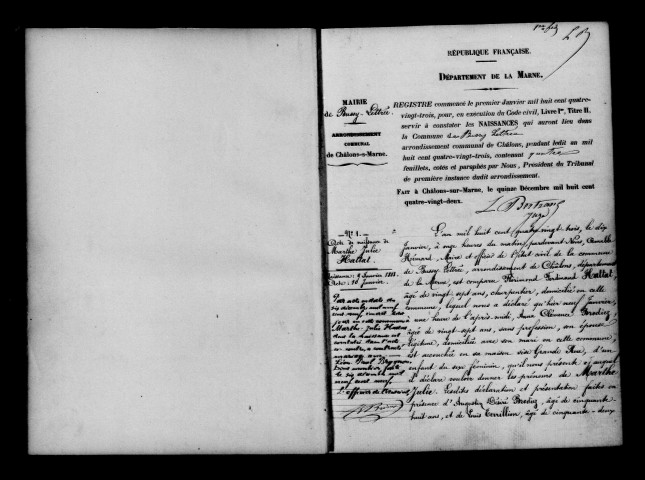 1er feuillet
RÉPUBLIQUE FRANÇAISE.
DÉPARTEMENT DE LA MARNE.
MAIRIE
de Bussy-Lettrée
ARRONDISSEMENT
COMMUNAL
de Châlons-s-Marne.
REGISTRE commencé le premier Janvier mil huit cent quatre-
vingt-trois, pour, en exécution du Code civil, Livre Ier, Titre II,
servir à constater les NAISSANCES qui auront lieu dans
la Commune de Bussy Lettrée
arrondissement communal de Châlons, pendant ledit an mil
huit cent quatre-vingt-trois, contenant quatre
feuillets, cotés et paraphés par Nous, Président du Tribunal
de première instance dudit arrondissement.
FAIT à Châlons-sur-Marne, le quinze Décembre mil huit cent
quatre-vingt-deux.
N° 1.
Acte de naissance de
Marthe Julie
Hattat
Naissance: 9 Janvier 1883.
Acte: 10 Janvier.
Marthe Julie Hattat
dont la naissance est
constatée dans l'acte
ci-contre, a contracté
mariage avec
L'an mil huit cent quatre-vingt-trois, le dix
Janvier, à onze heures du matin, pardevant Nous,
Maire et officier de l'état civil de la commune
de Bussy Lettrée, arrondissement de Châlons, département
de la Marne, est comparu Ferdinand Hattat,
âgé de vingt-sept ans, charpentier, domicilié en cette
commune, lequel nous a déclaré qu'hier neuf Janvier,
à une heure de l'après-midi, Anna Clémence
âgée de vingt-sept ans, sans profession, son épouse
légitime, domiciliée avec son mari en cette commune,
est accouchée en sa maison sise Grande Rue, d'un
enfant du sexe féminin, qu'il nous présente et auquel
il déclare vouloir donner les prénoms de Marthe
Julie. Lesdites déclaration et présentation faites en
présence d'Augustin Désiré, âgé de cinquante-
huit ans, et de Louis, âgé de cinquante-deux